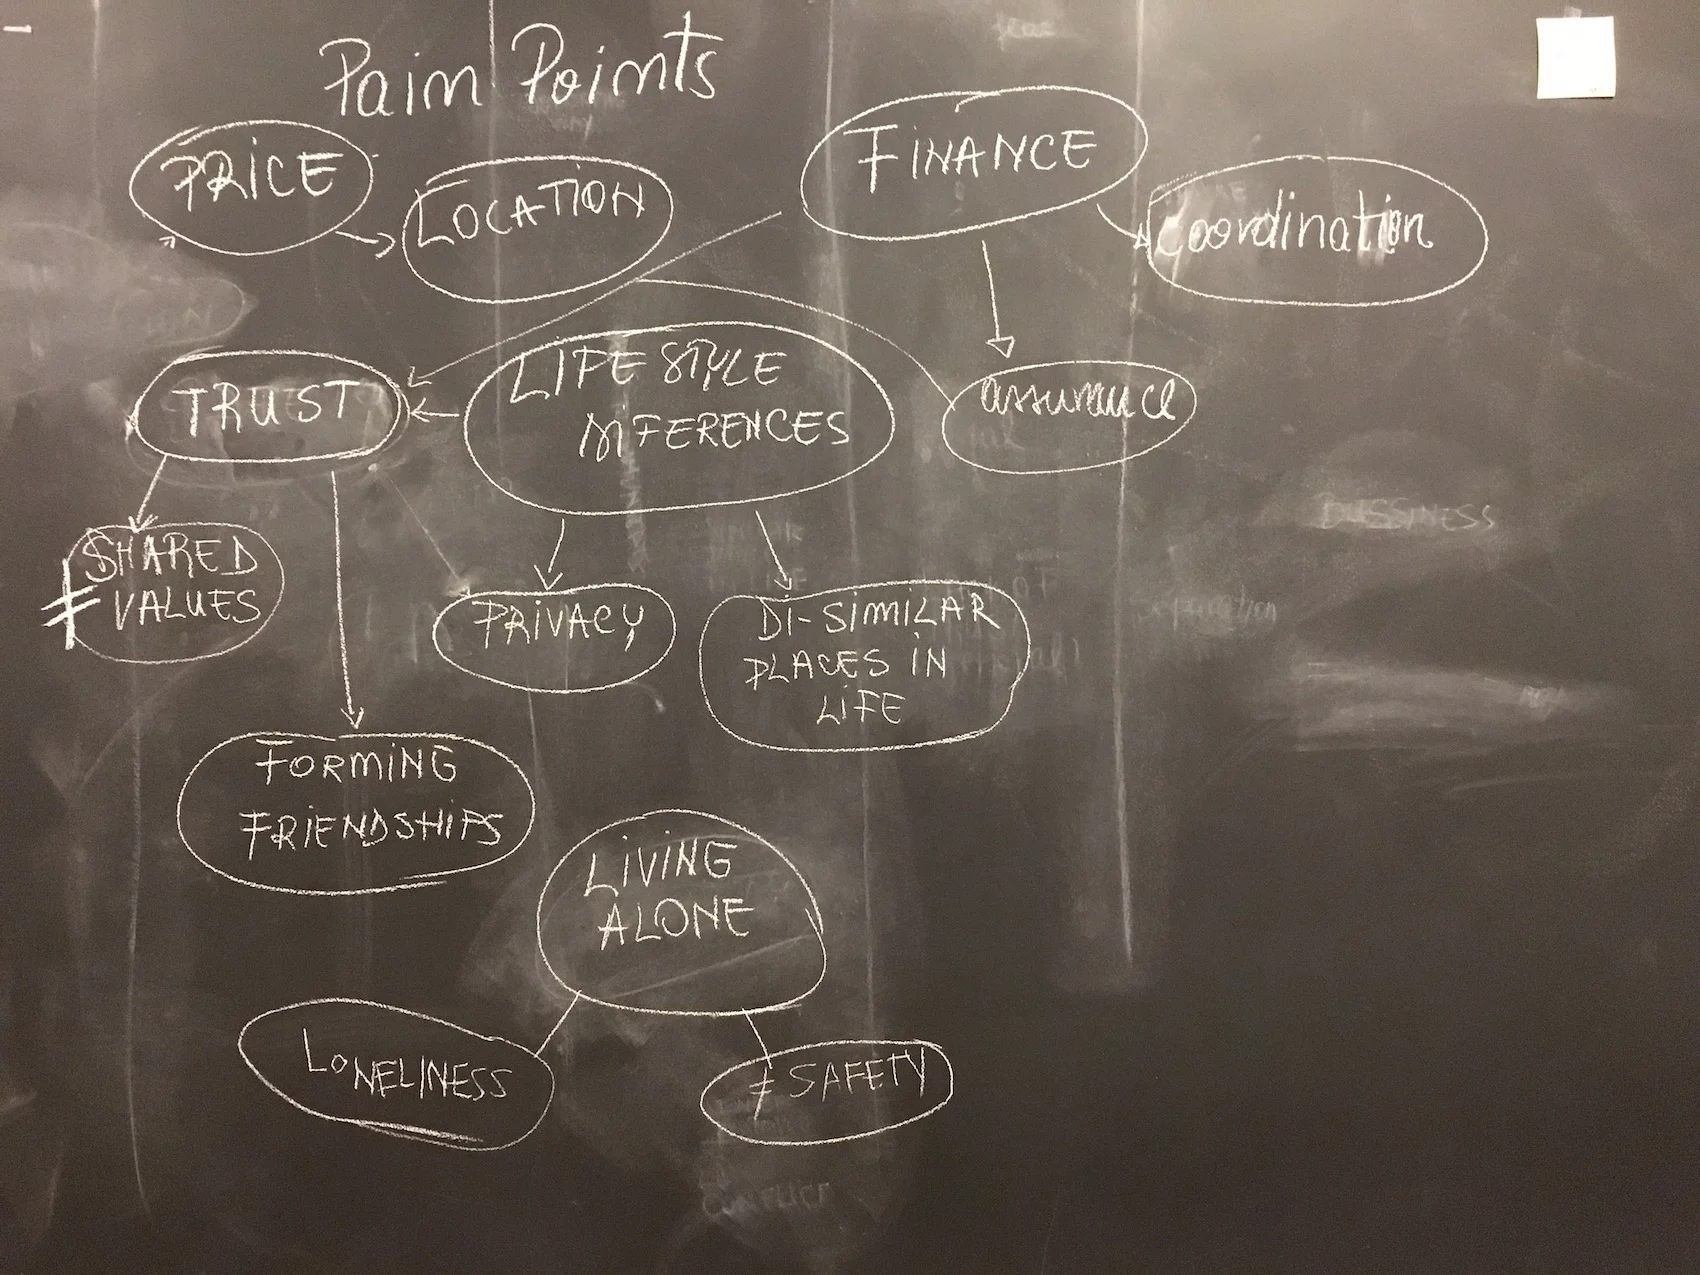 Pain Points
PRICE
LOCATION
FINANCE
Coordination
TRUST
LIFE STYLE
DIFERENCES
assurance
SHARED
≠ VALUES
PRIVACY
DI-SIMILAR
PLACES IN
LIFE
FORMING
FRIENDSHIPS
LIVING
ALONE
LONELINESS
≠ SAFETY
BUSSINESS